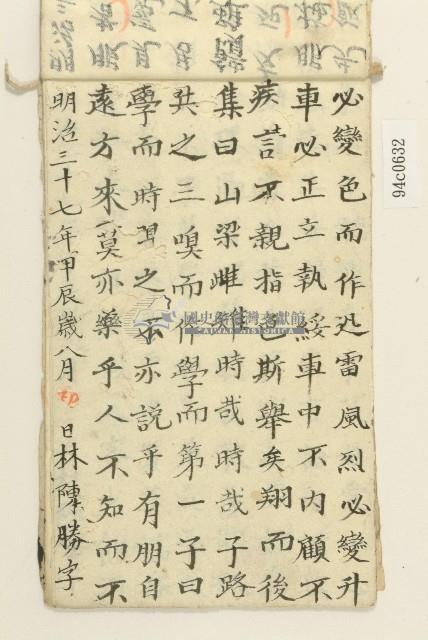 必變色而作迅雷風烈必變升
車必正立執綏車中不內顧不
疾言不親指色斯舉矣翔而後
集曰山梁雌雉時哉時哉子路
共之三嗅而作學而第一子曰
學而時習之不亦說乎有朋自
遠方來莫亦樂乎人不知而不
明治三十七年甲辰歲八月 日林陳勝字
國史館臺灣文獻館
TAIWAN HISTORICA
94c0632